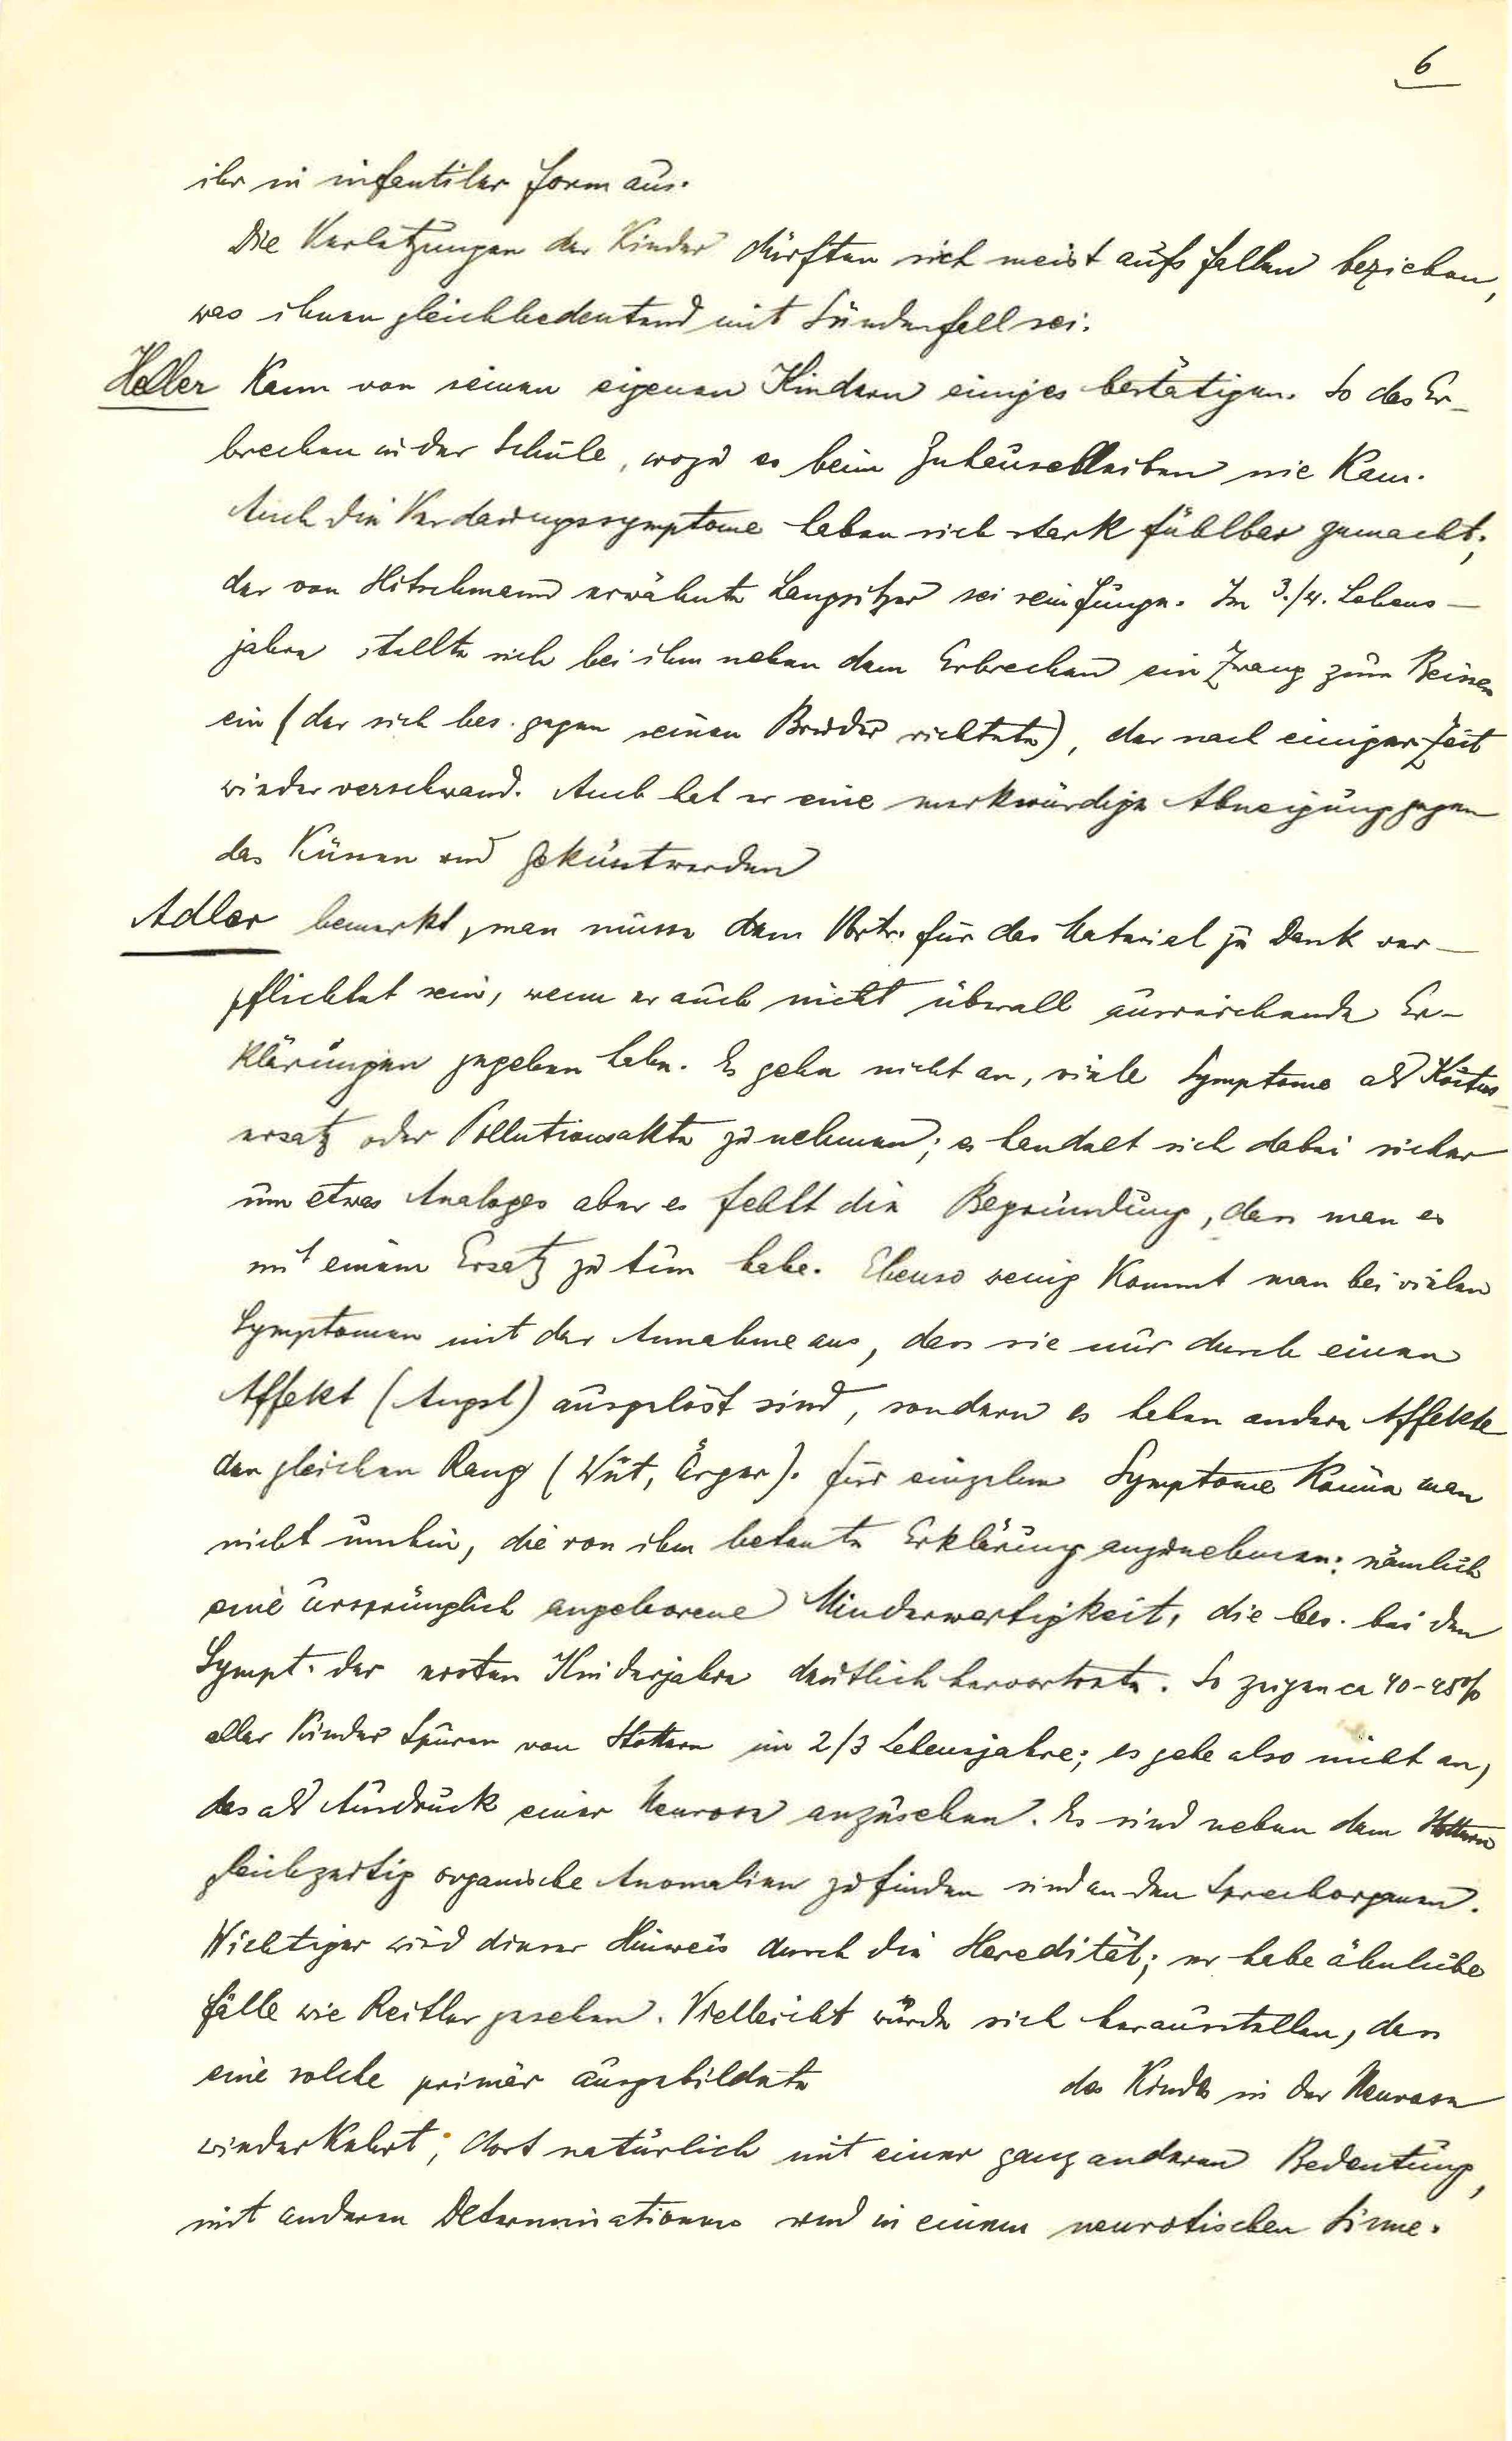 6
ihr in infantiler Form aus.
Die Verletzungen der Kinder dürften sich meist aufs Fallen beziehen,
was ihnen gleichbedeutend mit Sündenfall sei.
Heller Kann von seinen eigenen Kindern einiges bestätigen. So das Er-
brechen in der Schule, wozu es beim Zuhausebleiben nie Kam.
Auch die Verdauungssymptome haben sich stark fühlbar gemacht;
der von Hitschmann erwähnte Langsitzer sei sein Junge. Im 3./4. Lebens-
jahre stellte sich bei ihm neben dem Erbrechen ein Zwang zum Beissen
ein (der sich bes. gegen seinen Bruder richtete), der nach einiger Zeit
wieder verschwand. Auch hat er eine merkwürdige Abneigung gegen
das Küssen und Geküsstwerden
Adler bemerkt, man müsse dem Vortr. für das Material zu Dank ver-
pflichtet sein, wenn er auch nicht überall ausreichende Er-
klärungen gegeben habe. Es gehe nicht an, viele Symptome als Koitus-
ersatz oder Pollutionsakte zu nehmen; es handelt sich dabei sicher
um etwas Analoges aber es fehlt die Begründung, dass man es
mit einem Ersatz zu tun habe. Ebenso wenig Kommt man bei vielen
Symptomen mit der Annahme aus, dass sie nur durch einen
Affekt (Angst) ausgelöst sind, sondern es haben andere Affekte
den gleichen Rang (Wut, Ärger). Für einzelne Symptome Könne man
nicht umhin, die von ihm betonte Erklärung anzunehmen: nämlich
eine ursprünglich angeborene Minderwertigkeit, die bes. bei den
Sympt. der ersten Kinderjahre deutlich hervortrete. So zeigen ca 40-45%
aller Kinder Spuren von Stottern im 2/3 Lebensjahre; es gehe also nicht an,
das als Ausdruck einer Neurose anzusehen. Es sind neben dem Stottern
gleichzeitig organische Anomalien zu finden sind an den Sprechorganen.
Wichtiger wird dieser Hinweis durch die Heredität; er habe ähnliche
Fälle wie Reitler gesehen. Vielleicht würde sich herausstellen, dass
eine solche primär ausgebildete des Kindes in der Neurose
wiederkehrt; dort natürlich mit einer ganz anderen Bedeutung,
mit anderen Determinationen und in einem neurotischen Sinne.